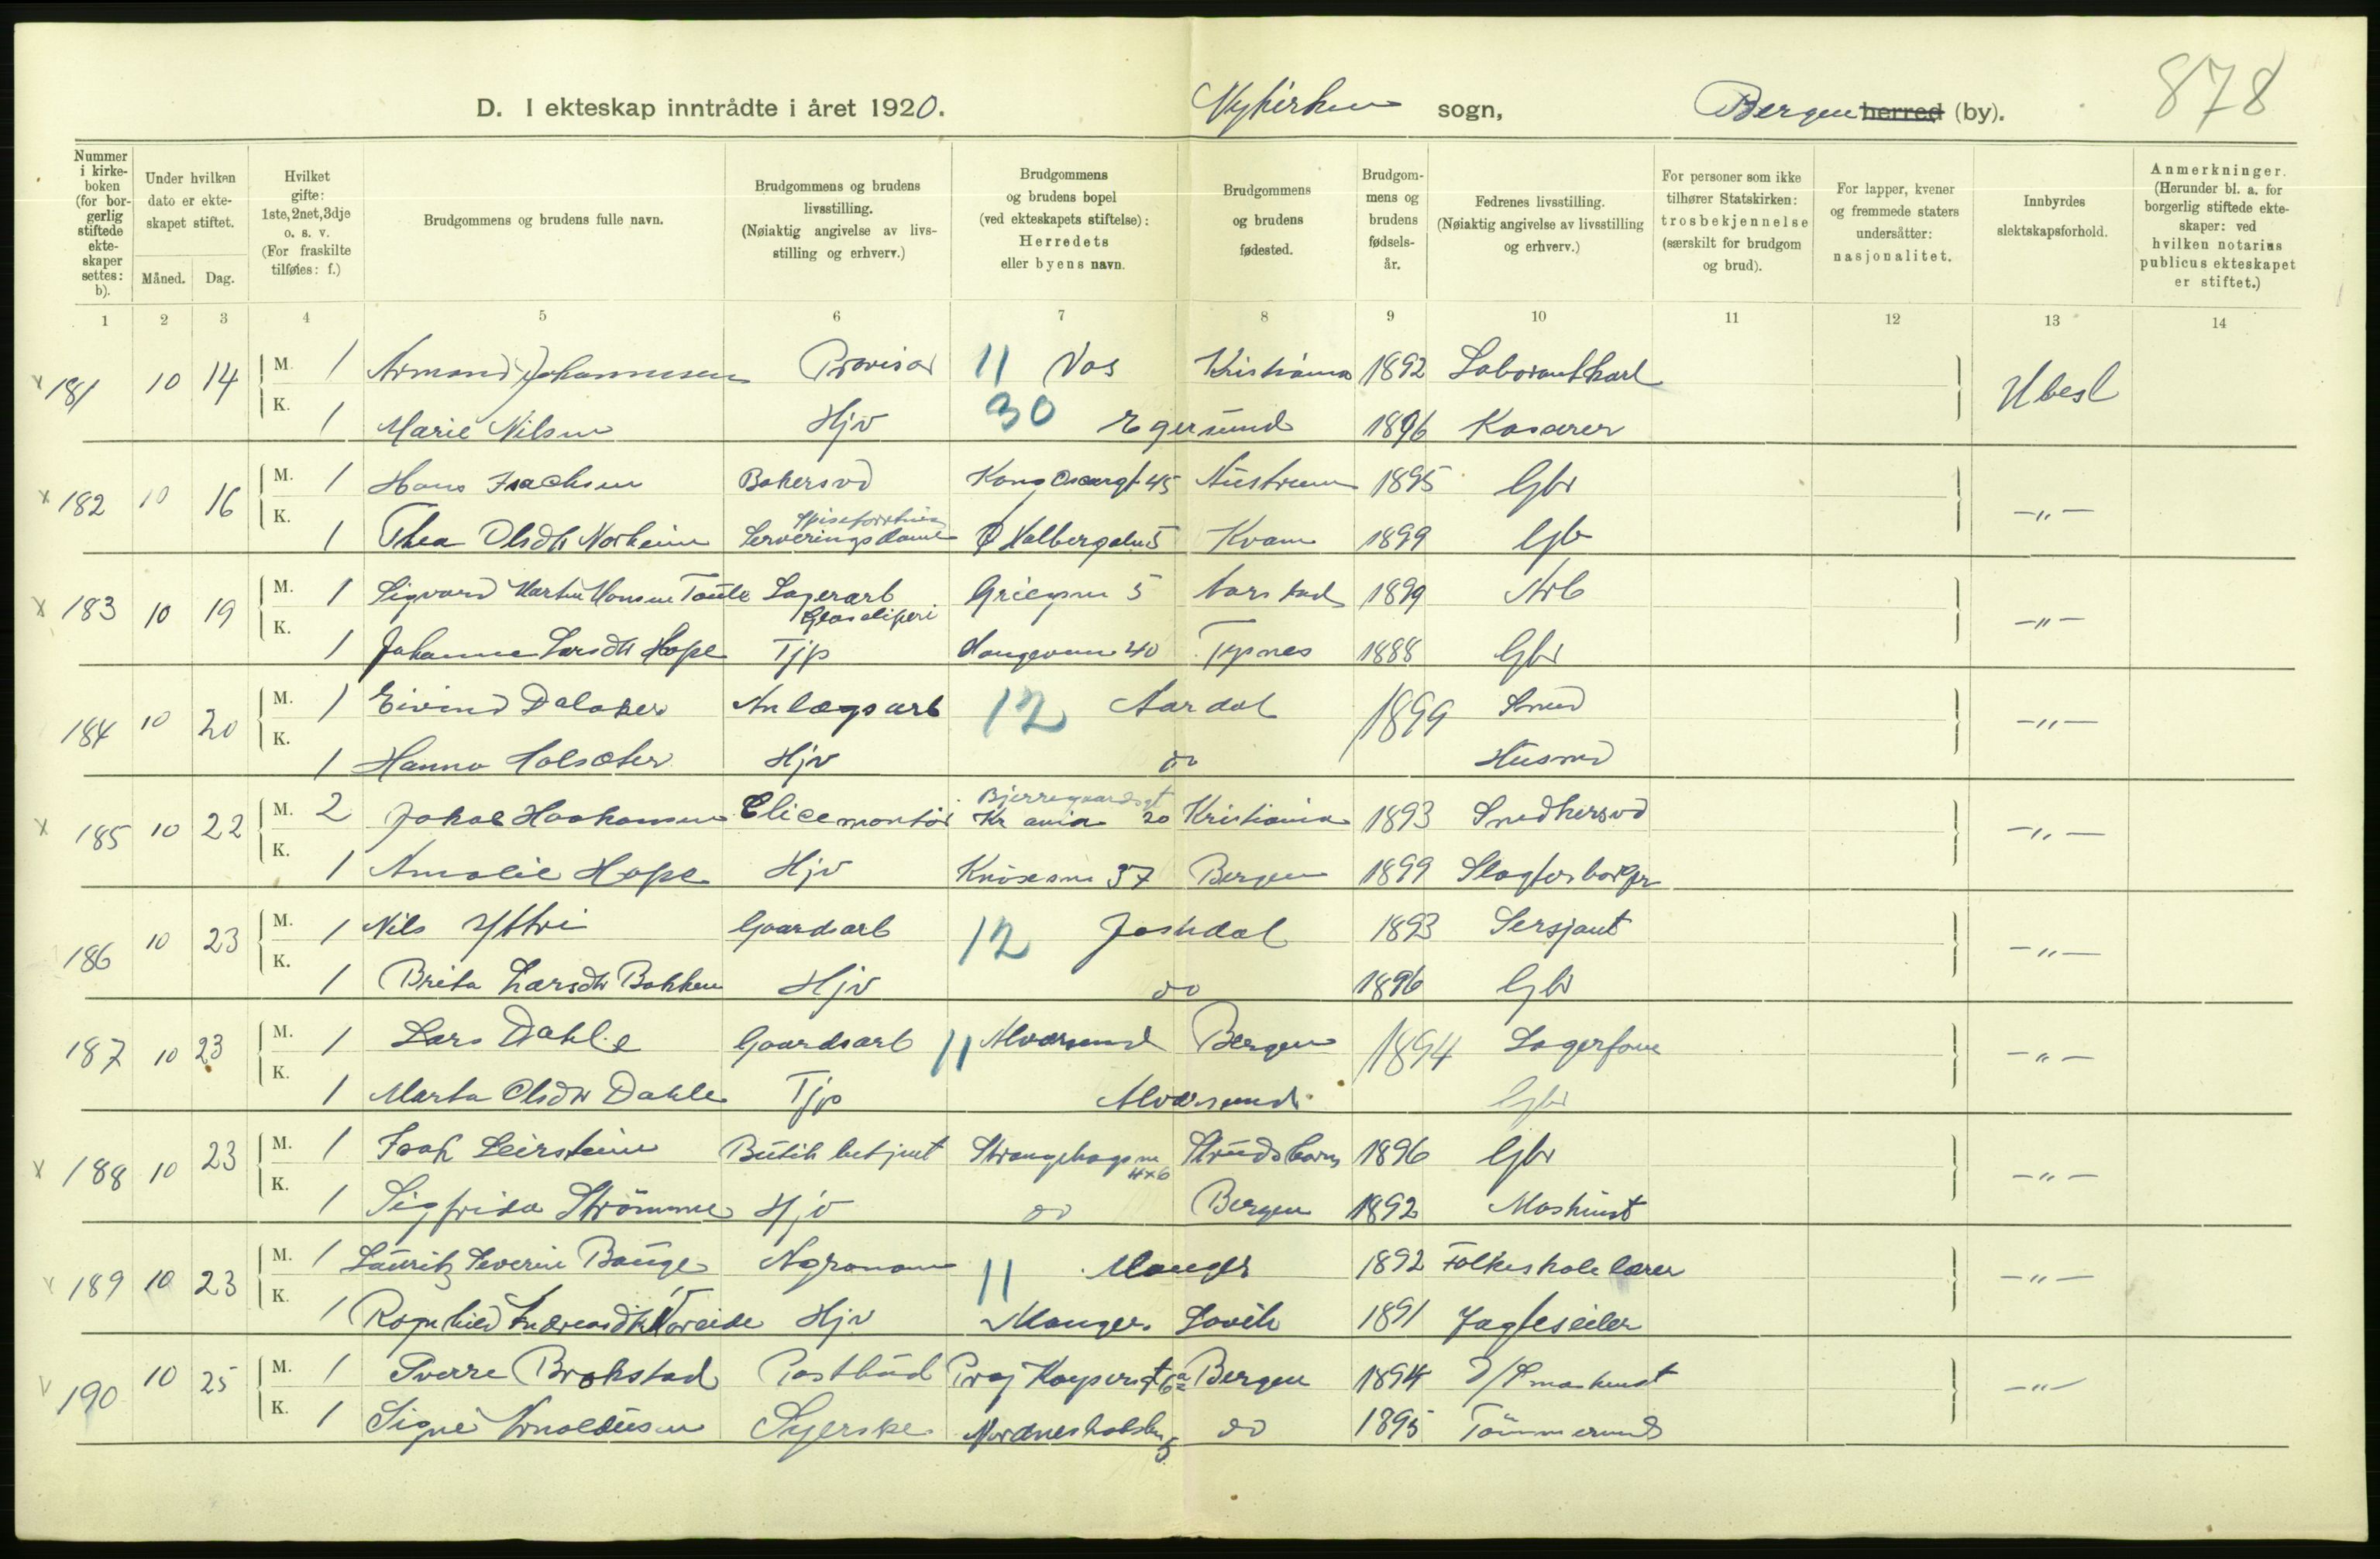 878
D. I ekteskap inntrådte i året 1920. Nykirken sogn, Bergen herred (by).
Nummer i kirkeboken (for borgerlig stiftede ekteskaper settes: b).
Under hvilken dato er ekteskapet stiftet.
Måned. Dag.
Hvilket gifte: 1ste, 2net, 3dje o. s. v. (For fraskilte tilføies: f.)
Brudgommens og brudens fulle navn.
Brudgommens og brudens livsstilling. (Nøiaktig angivelse av livsstilling og erhverv.)
Brudgommens og brudens bopel (ved ekteskapets stiftelse): Herredets eller byens navn.
Brudgommens og brudens fødested.
Brudgommens og brudens fødselsår.
Fedrenes livsstilling. (Nøiaktig angivelse av livsstilling og erhverv.)
For personer som ikke tilhører Statskirken: trosbekjennelse (særskilt for brudgom og brud).
For lapper, kvener og fremmede staters undersåtter: nasjonalitet.
Innbyrdes slektskapsforhold.
Anmerkninger. (Herunder bl. a. for borgerlig stiftede ekteskaper: ved hvilken notarius publicus ekteskapet er stiftet.)
1 2 3 4 5 6 7 8 9 10 11 12 13 14
x 181 10 14 M. 1 Armand Johannesen Provisor 11 Vos Kristiania 1892 Laborantkarl Ubesl
K. 1 Marie Nilsen Hjv 30 Egersund 1896 Kaserer
x 182 10 16 M. 1 Hans Isachsen Bakersvd Kong Oscargt 45 Austrheim 1895 Gbr —"—
K. 1 Thea Olsdtr Norheim Serveringsdame Spiseforretning 5 Kvam 1899 Gbr
x 183 10 19 M. 1 Sigvard Martin Hansen Taule Lagerarb Glassliperi 5 Aarstad 1899 Arb —"—
K. 1 Johanne Larsdtr Hope Tjp Haugeveien 40 1888 Gbr
184 10 20 M. 1 Eivind Dalaker Anlægsarb 12 Aardal 1899 Smed —"—
K. 1 Hanna Holsæter Hjv do Husmd
x 185 10 22 M. 2 Jakob Haakonsen Elicemontør Bjerregaardsgt 20 Kr ania Kristiania 1893 Snedkersvd —"—
K. 1 Amalie Hope Hjv Knøsesm 37 Bergen 1899 Slagterborger
186 10 23 M. 1 Nils Yttri Gaardsarb 12 Jostedal 1893 Sersjant —"—
K. 1 Brita Larsdtr Bakken Hjv do 1896 Gbr
187 10 23 M. 1 Lars Dahle Gaardsarb 11 Alversund Bergen 1894 Lagerform —"—
K. 1 Marta Olsdtr Dahle Tjp Alversund Gbr
x 188 10 23 M. 1 Isak Leirstein Butik betjent Strangehagen 4x6 Strudshavn 1896 Gbr —"—
K. 1 Sigfrida Strömme Hjv do Bergen 1892 Maskinist
189 10 23 M. 1 Lauritz Severin Bauge Agronom 11 Manger 1892 Folkeskolelærer —"—
K. 1 Ragnhild Andreasdtr Noreide Hjv Manger Lavik 1891 Jagteseiler
190 10 25 M. 1 Sverre Brokstad Postbud 6a Bergen 1894 D/S maskinist —"—
K. 1 Signe Arnoldusen Syerske Nordnesbakken 5 do 1895 Tömmermd